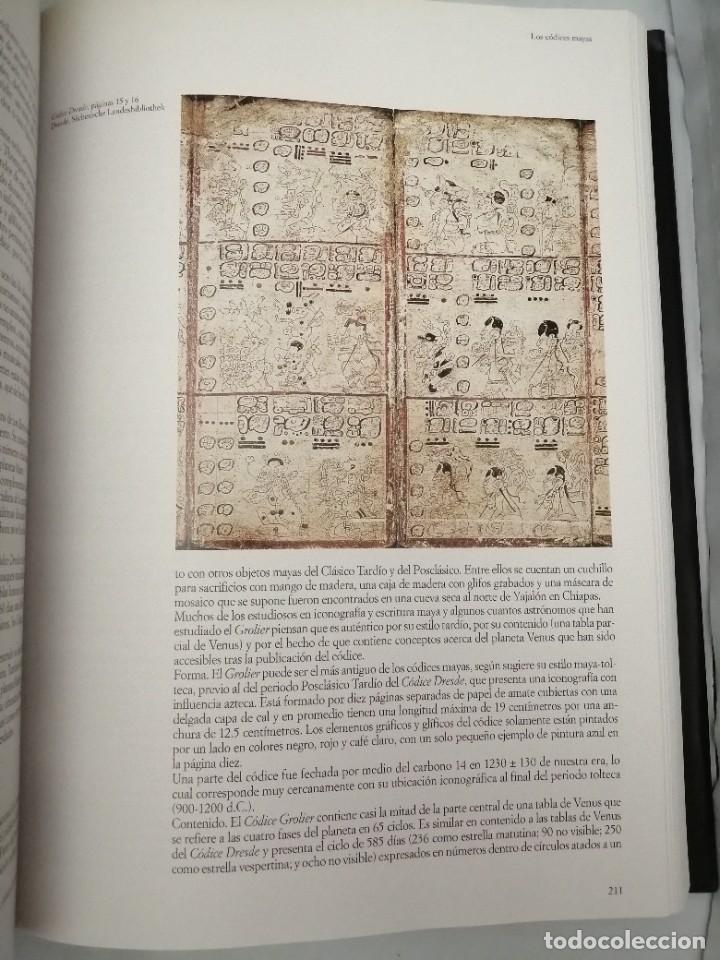 Los códices mayas
Códice Dresde, páginas 15 y 16
Dresde, Sächsische Landesbibliothek
to con otros objetos mayas del Clásico Tardío y del Posclásico. Entre ellos se cuentan un cuchillo
para sacrificios con mango de madera, una caja de madera con glifos grabados y una máscara de
mosaico que se supone fueron encontrados en una cueva seca al norte de Yajalón en Chiapas.
Muchos de los estudiosos en iconografía y escritura maya y algunos cuantos astrónomos que han
estudiado el Grolier piensan que es auténtico por su estilo tardío, por su contenido (una tabla par-
cial de Venus) y por el hecho de que contiene conceptos acerca del planeta Venus que han sido
accesibles tras la publicación del códice.
Forma. El Grolier puede ser el más antiguo de los códices mayas, según sugiere su estilo maya-tol-
teca, previo al del periodo Posclásico Tardío del Códice Dresde, que presenta una iconografía con
influencia azteca. Está formado por diez páginas separadas de papel de amate cubiertas con una
delgada capa de cal y en promedio tienen una longitud máxima de 19 centímetros por una an-
chura de 12.5 centímetros. Los elementos gráficos y glíficos del códice solamente están pintados
por un lado en colores negro, rojo y café claro, con un solo pequeño ejemplo de pintura azul en
la página diez.
Una parte del códice fue fechada por medio del carbono 14 en 1230 ± 130 de nuestra era, lo
cual corresponde muy cercanamente con su ubicación iconográfica al final del periodo tolteca
(900-1200 d.C.).
Contenido. El Códice Grolier contiene casi la mitad de la parte central de una tabla de Venus que
se refiere a las cuatro fases del planeta en 65 ciclos. Es similar en contenido a las tablas de Venus
del Códice Dresde y presenta el ciclo de 585 días (236 como estrella matutina; 90 no visible; 250
como estrella vespertina; y ocho no visible) expresados en números dentro de círculos atados a un
211
todocoleccion